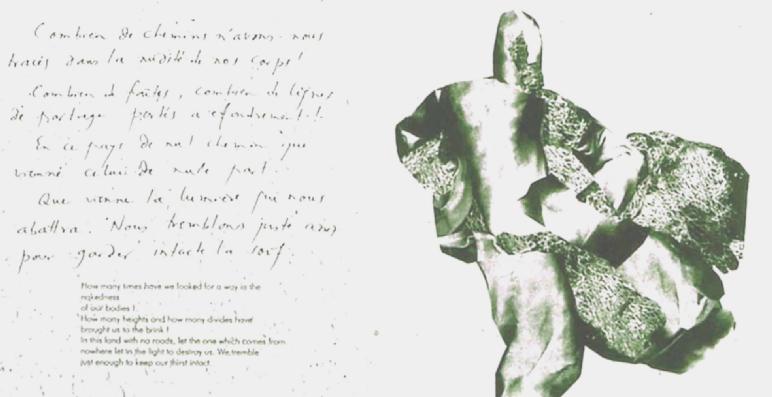 Combien de chemins n'avons-nous
tracés dans la nudité de nos corps!
Combien de faîtes, combien de lignes
de partage portés a éfondrement!
En ce pays de nul chemin que
vienne celui de nule part.
Que vienne la lumière qui nous
abattra. Nous tremblons juste assez
pour garder intacte la soif.
How many times have we looked for a way in the
nakedness
of our bodies !
How many heights and how many divides have
brought us to the brink !
In this land with no roads, let the one which comes from
nowhere let in the light to destroy us. We tremble
just enough to keep our thirst intact.